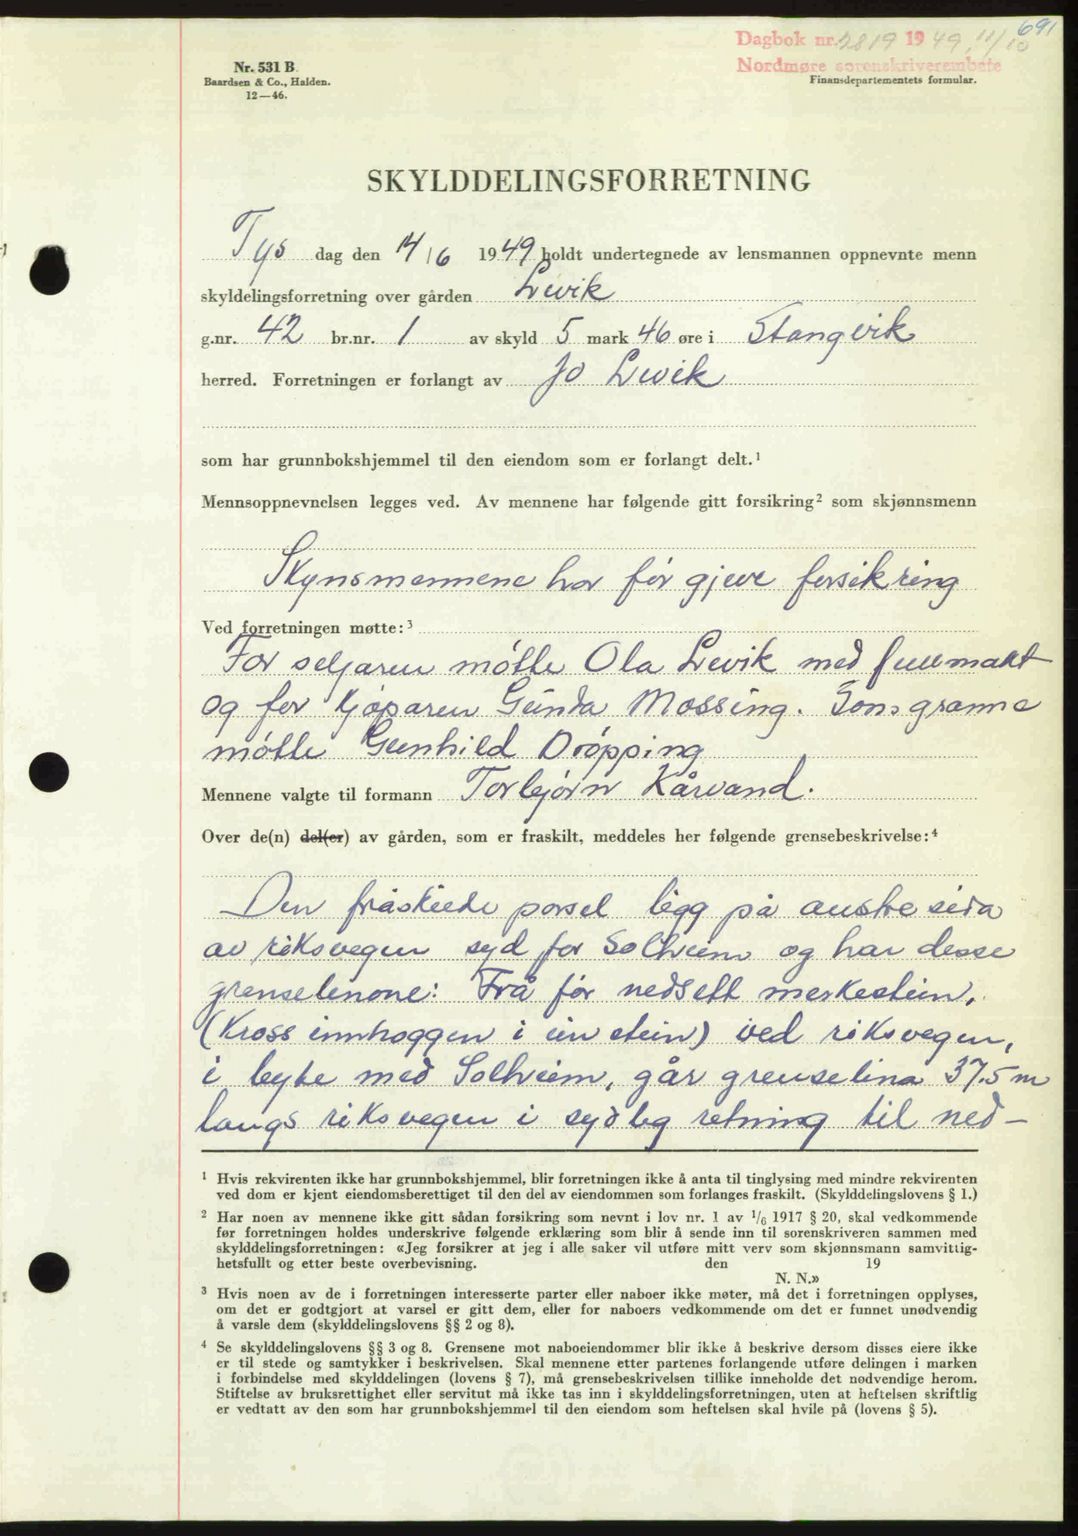 691
Dagbok nr. 2819 1949, 11/10
Nordmøre sorenskriverembete
Nr. 531 B.
Baardsen & Co., Halden.
12—46.
Finansdepartementets formular.
SKYLDDELINGSFORRETNING
Tys dag den 14/6 1949 holdt undertegnede av lensmannen oppnevnte menn
skyldelingsforretning over gården Levik
g.nr. 42 br.nr. 1 av skyld 5 mark 46 øre i Stangvik
herred. Forretningen er forlangt av Jo Levik
som har grunnbokshjemmel til den eiendom som er forlangt delt.¹
Mennsoppnevnelsen legges ved. Av mennene har følgende gitt forsikring² som skjønnsmenn
Skynsmennene har før gjeve forsikring
Ved forretningen møtte:³
For seljaren møtte Ola Levik med fullmakt
og for kjøparen Gunda Mossing. Som granne
møtte Gunhild Drøpping
Mennene valgte til formann Torbjørn Kårvand.
Over de(n) del(er) av gården, som er fraskilt, meddeles her følgende grensebeskrivelse:⁴
Den fråskilde parsel ligg på austre sida
av riksvegen syd for Solheim og har desse
grenselinone: Frå før nedsett merkestein,
(Kross innhoggen i ein stein) ved riksvegen,
i byte med Solheim, går grenselina 37.5 m
langs riksvegen i sydleg retning til ned-
¹ Hvis rekvirenten ikke har grunnbokshjemmel, blir forretningen ikke å anta til tinglysing med mindre rekvirenten
ved dom er kjent eiendomsberettiget til den del av eiendommen som forlanges fraskilt. (Skylddelingslovens § 1.)
² Har noen av mennene ikke gitt sådan forsikring som nevnt i lov nr. 1 av 1/6 1917 § 20, skal vedkommende
før forretningen holdes underskrive følgende erklæring som blir å sende inn til sorenskriveren sammen med
skylddelingsforretningen: «Jeg forsikrer at jeg i alle saker vil utføre mitt verv som skjønnsmann samvittig-
hetsfullt og etter beste overbevisning. den 19
N. N.»
³ Hvis noen av de i forretningen interesserte parter eller naboer ikke møter, må det i forretningen opplyses,
om det er godtgjort at varsel er gitt dem, eller for naboers vedkommende om det er funnet unødvendig
å varsle dem (skylddelingslovens §§ 2 og 8).
⁴ Se skylddelingslovens §§ 3 og 8. Grensene mot naboeiendommer blir ikke å beskrive dersom disses eiere ikke
er til stede og samtykker i beskrivelsen. Skal mennene etter partenes forlangende utføre delingen i marken
i forbindelse med skylddelingen (lovens § 7), må grensebeskrivelsen tillike inneholde det nødvendige herom.
Stiftelse av bruksrettighet eller servitut må ikke tas inn i skylddelingsforretningen, uten at heftelsen skriftlig
er vedtatt av den som har grunnbokshjemmel til den eiendom som heftelsen skal hvile på (lovens § 5).